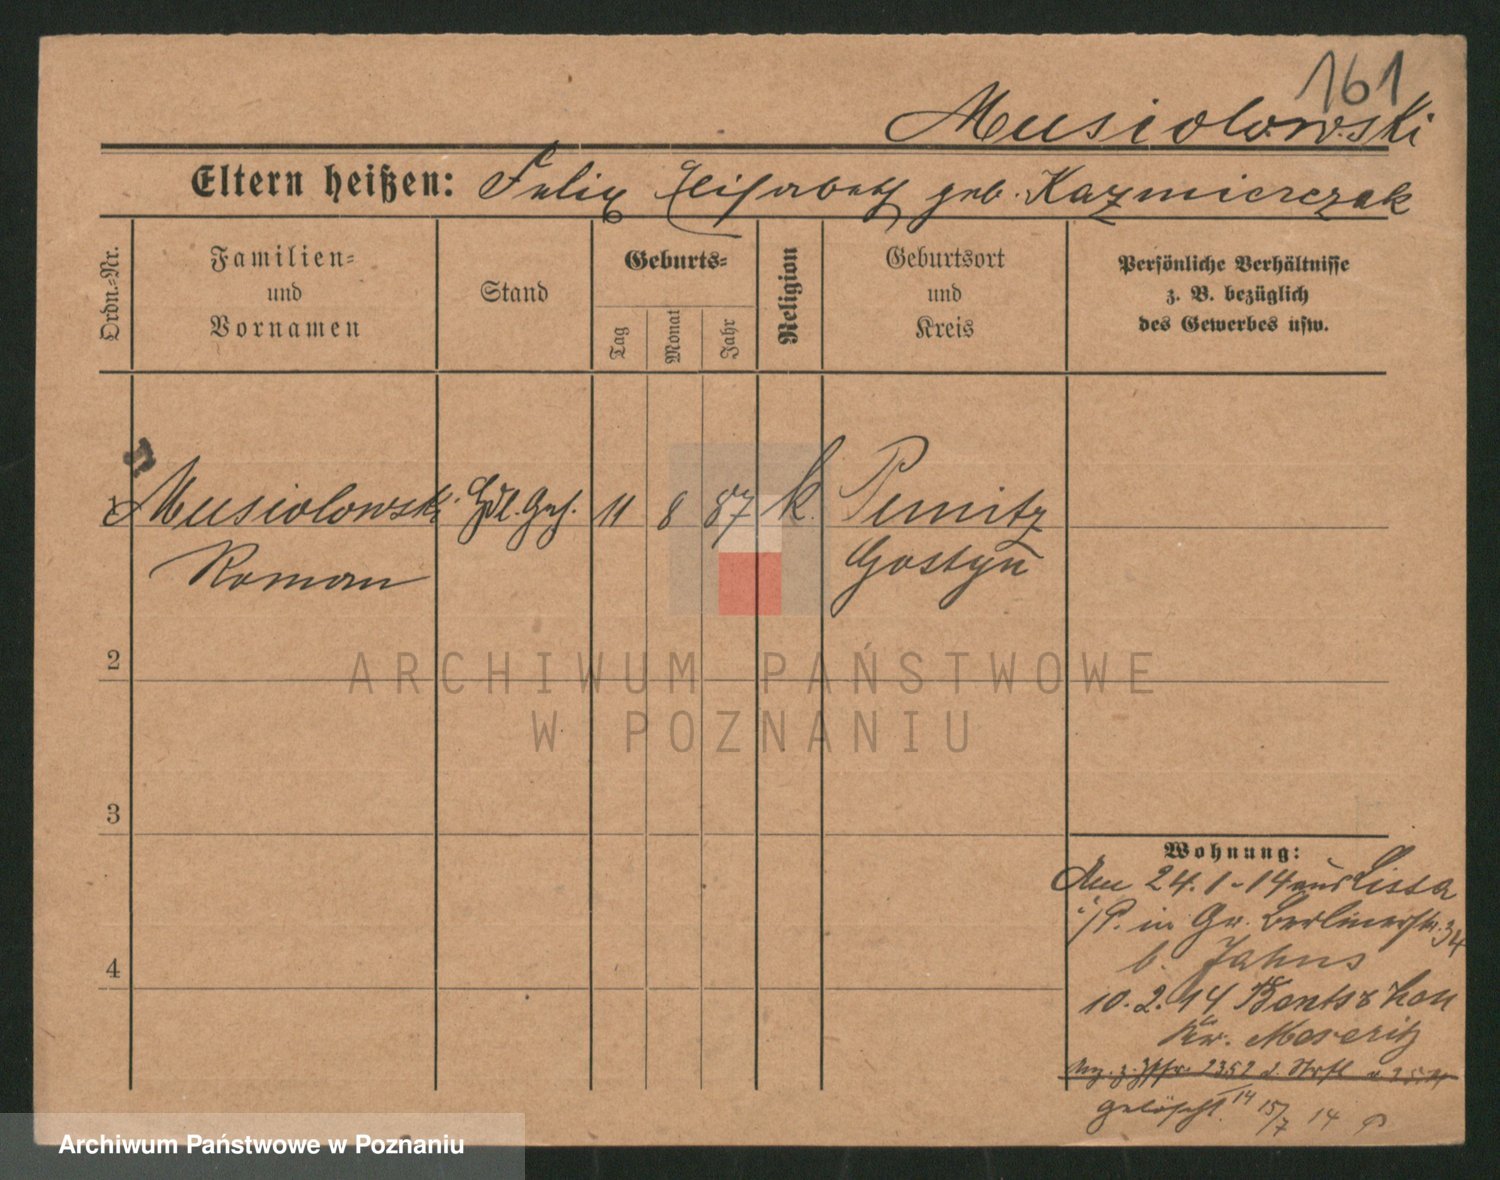 161
Musiolowski
Eltern heißen: Felix Elisabeth geb. Kazmierczak
Ordn.-Nr.
Familien-
und
Vornamen
Stand
Geburts-
Tag
Monat
Jahr
Religion
Geburtsort
und
Kreis
Persönliche Verhältnisse
z. B. bezüglich
des Gewerbes usw.
1 Musiolowski Hdl. Geh. 11 8 87 k. Punitz
Roman Gostyn
2
3
4
ARCHIWUM PAŃSTWOWE
W POZNANIU
Wohnung:
24.1-14 aus Lissa
i/P. in Gr. Berlinerstr. 34
b. Jahns
10.2.14 Bentschen
Kr. Meseritz
2352 d.
gelöscht. 14 15/7 14
Archiwum Państwowe w Poznaniu